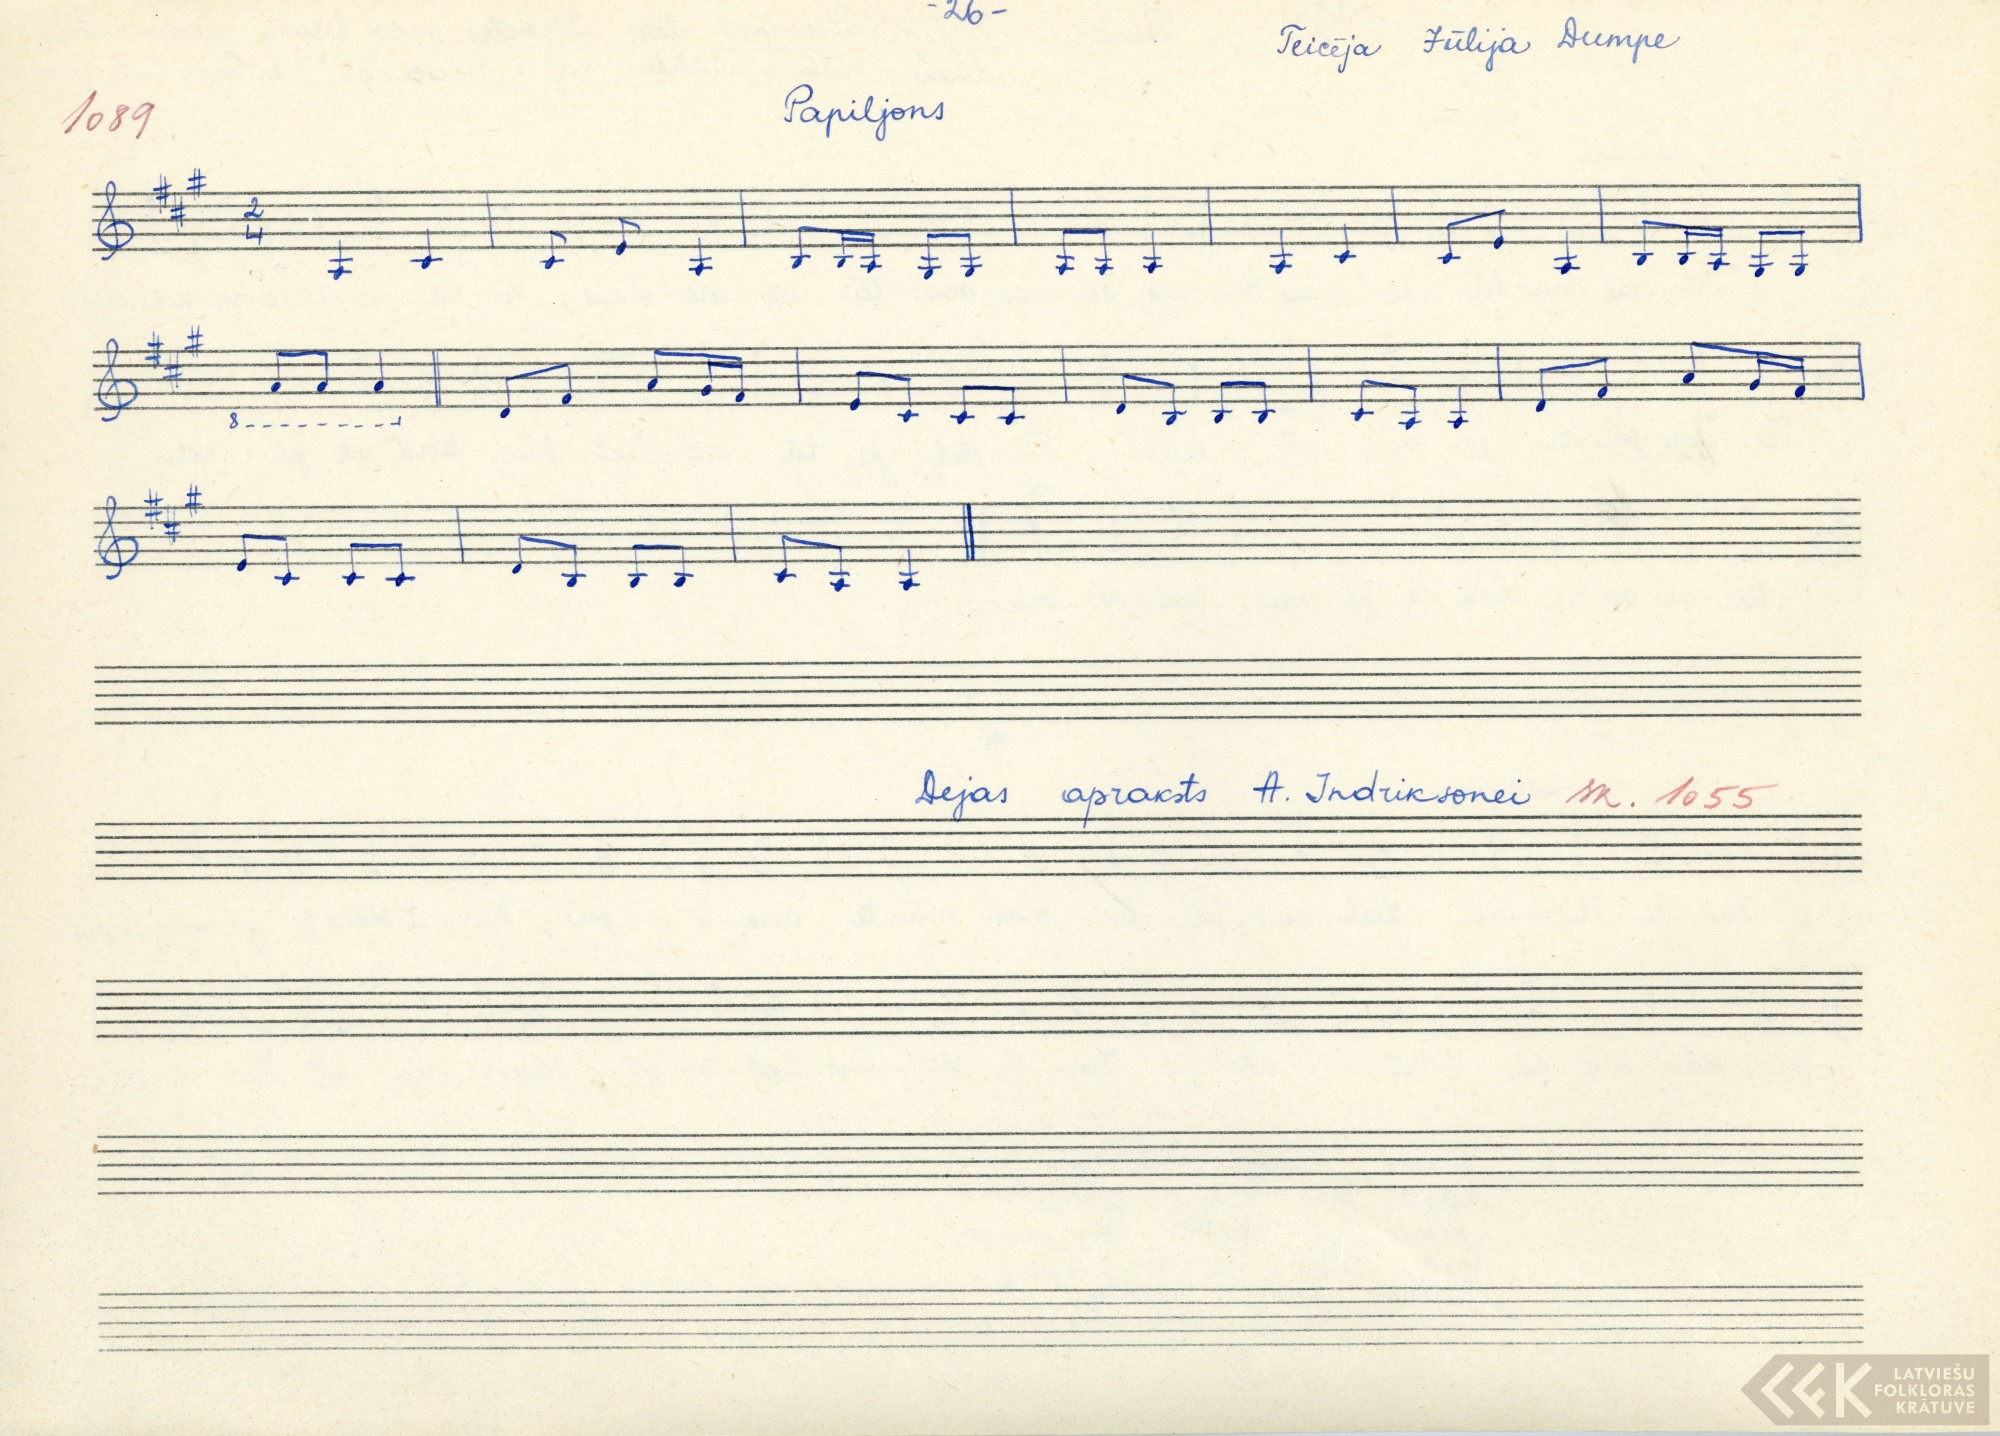 -26-
Teicēja Jūlija Dumpe
1089
Papiljons
2
4
8
Dejas apraksts A. Indriksonei sk. 1055
LATVIEŠU
FOLKLORAS
KRĀTUVE